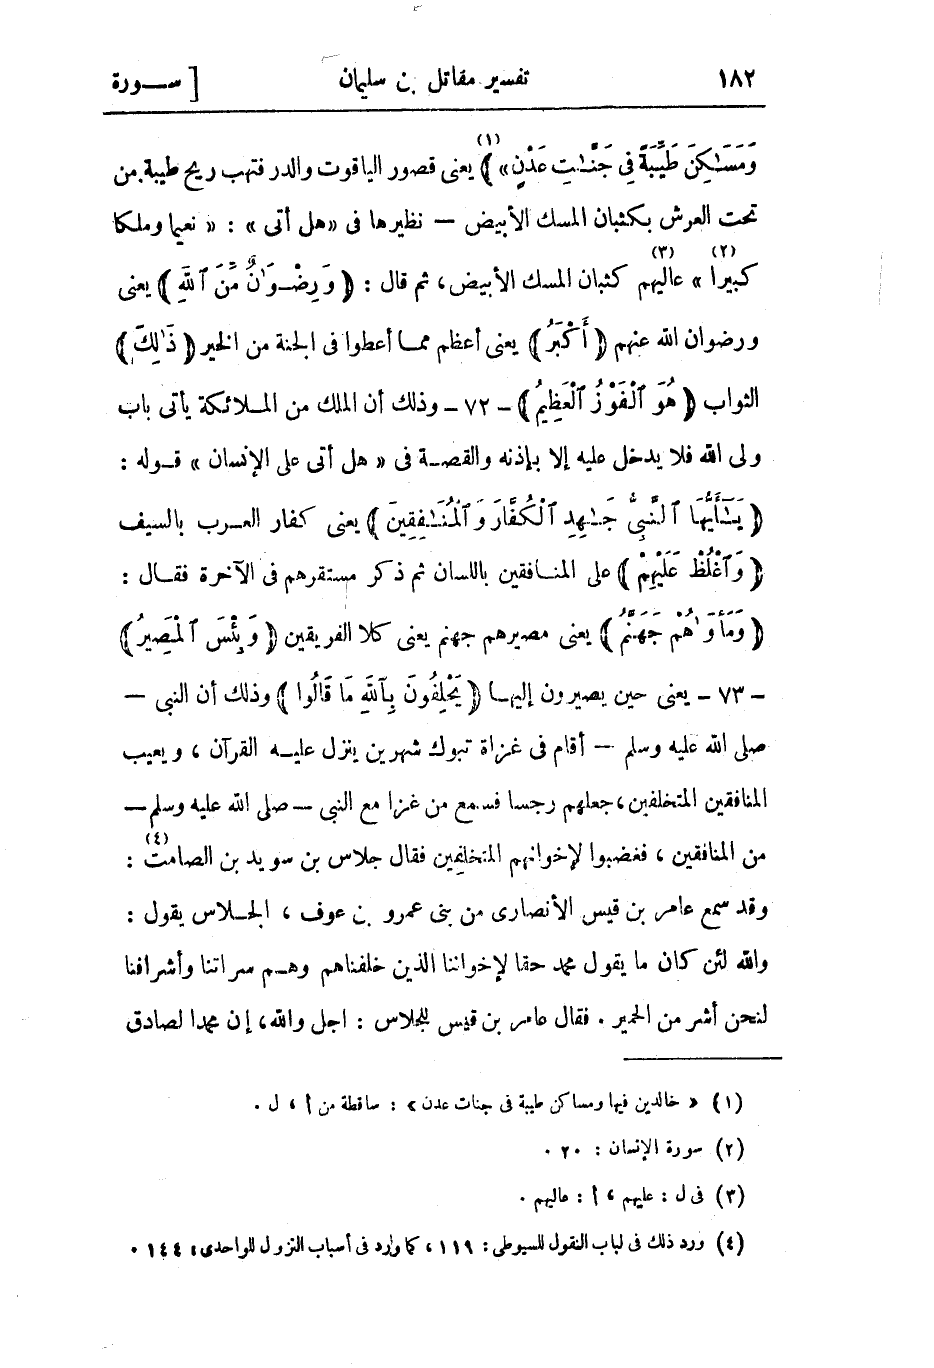 ١٨٢ تفسير مقاتل بن سليمان [ ســورة
وَمَسَـٰكِنَ طَيِّبَةً فِى جَنَّـٰتِ عَدْنٍ» ﴾ (١) يعنى قصور الياقوت والدر فتهب ريح طيبة من
تحت العرش بكثبان المسك الأبيض — نظيرها فى «هل أتى» : « نعيما وملكا
كبيرا » (٢) عاليهم (٣) كثبان المسك الأبيض، ثم قال : ﴿ وَرِضْوَٰنٌ مِّنَ ٱللَّهِ ﴾ يعنى
ورضوان الله عنهم ﴿ أَكْبَرُ ﴾ يعنى أعظم ممـا أعطوا فى الجنة من الخير ﴿ ذَٰلِكَ ﴾
الثواب ﴿ هُوَ ٱلْفَوْزُ ٱلْعَظِيمُ ﴾ - ٧٢ - وذلك أن الملك من المـلائكة يأتى باب
ولى الله فلا يدخل عليه إلا بإذنه والقصـة فى « هل أتى على الإنسان » قـوله :
﴿ يَـٰٓأَيُّهَا ٱلنَّبِىُّ جَـٰهِدِ ٱلْكُفَّارَ وَٱلْمُنَـٰفِقِينَ ﴾ يعنى كفار العـرب بالسيف
﴿ وَٱغْلُظْ عَلَيْهِمْ ﴾ على المنـافقين باللسان ثم ذكر مستقرهم فى الآخرة فقـال :
﴿ وَمَأْوَىٰهُمْ جَهَنَّمُ ﴾ يعنى مصيرهم جهنم يعنى كلا الفريقين ﴿ وَبِئْسَ ٱلْمَصِيرُ ﴾
- ٧٣ - يعنى حين يصيرون إليهـا ﴿ يَحْلِفُونَ بِٱللَّهِ مَا قَالُوا ﴾ وذلك أن النبى —
صلى الله عليه وسلم — أقام فى غزاة تبوك شهرين ينزل عليـه القرآن ، ويعيب
المنافقين المتخلفين، جعلهم رجسا فسمع من غزا مع النبى — صلى الله عليه وسلم —
من المنافقين ، فغضبوا لإخوانهم المتخلفين فقال جلاس بن سويد بن الصامت (٤) :
وقد سمع عامر بن قيس الأنصارى من بنى عمرو بن عوف ، الجـلاس يقول :
والله لئن كان ما يقول محمد حقا لإخواننا الذين خلفناهم وهـم سراتنا وأشرافنا
لنحن أشر من الحمير . فقال عامر بن قيس للجلاس : اجل والله، إن محمدا لصادق
(١) « خالدين فيها ومساكن طيبة فى جنات عدن » : ساقطة من أ ، ل .
(٢) سورة الإنسان : ٢٠ .
(٣) فى ل : عليهم ، أ : عاليهم .
(٤) ورد ذلك فى لباب النقول للسيوطى : ١١٩ ، كما ورد فى أسباب النزول للواحدى : ١٤٤ .